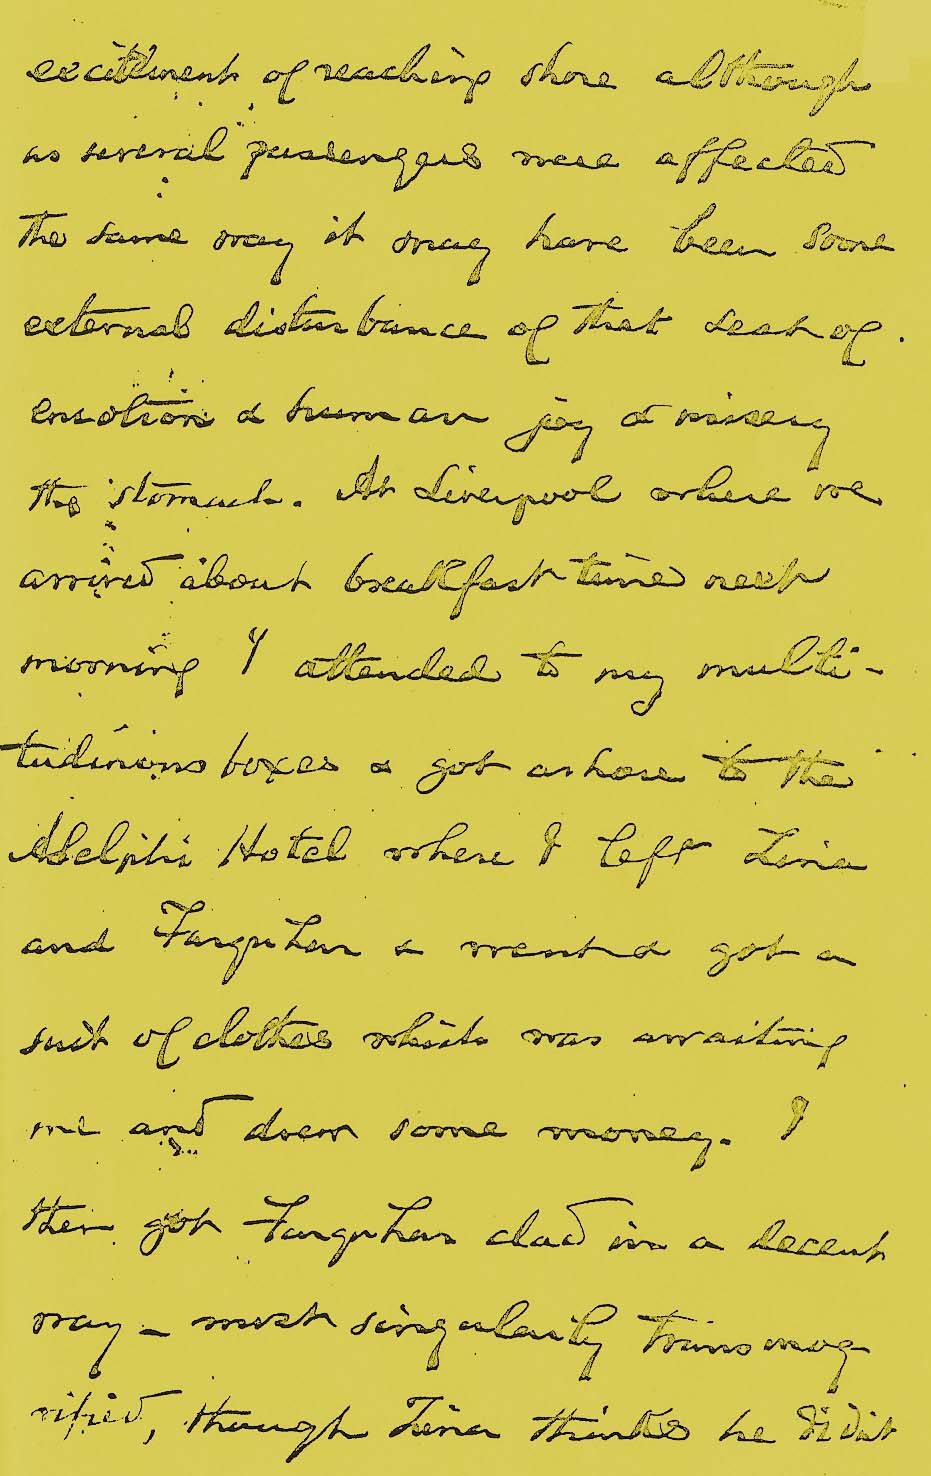 excitement of reaching shore although
as several passengers were affected
the same way it may have been some
external disturbance of that seat of
emotion & human joy & misery
the stomach. At Liverpool where we
arrived about breakfast time next
morning I attended to my multi-
tudinous boxes & got ashore to the
Adelphi Hotel where I left Lina
and Farquhar & went & got a
suit of clothes which was awaiting
me and drew some money. I
then got Farquhar clad in a decent
way - most singularly transmog
rified, though Lina thinks he didnt